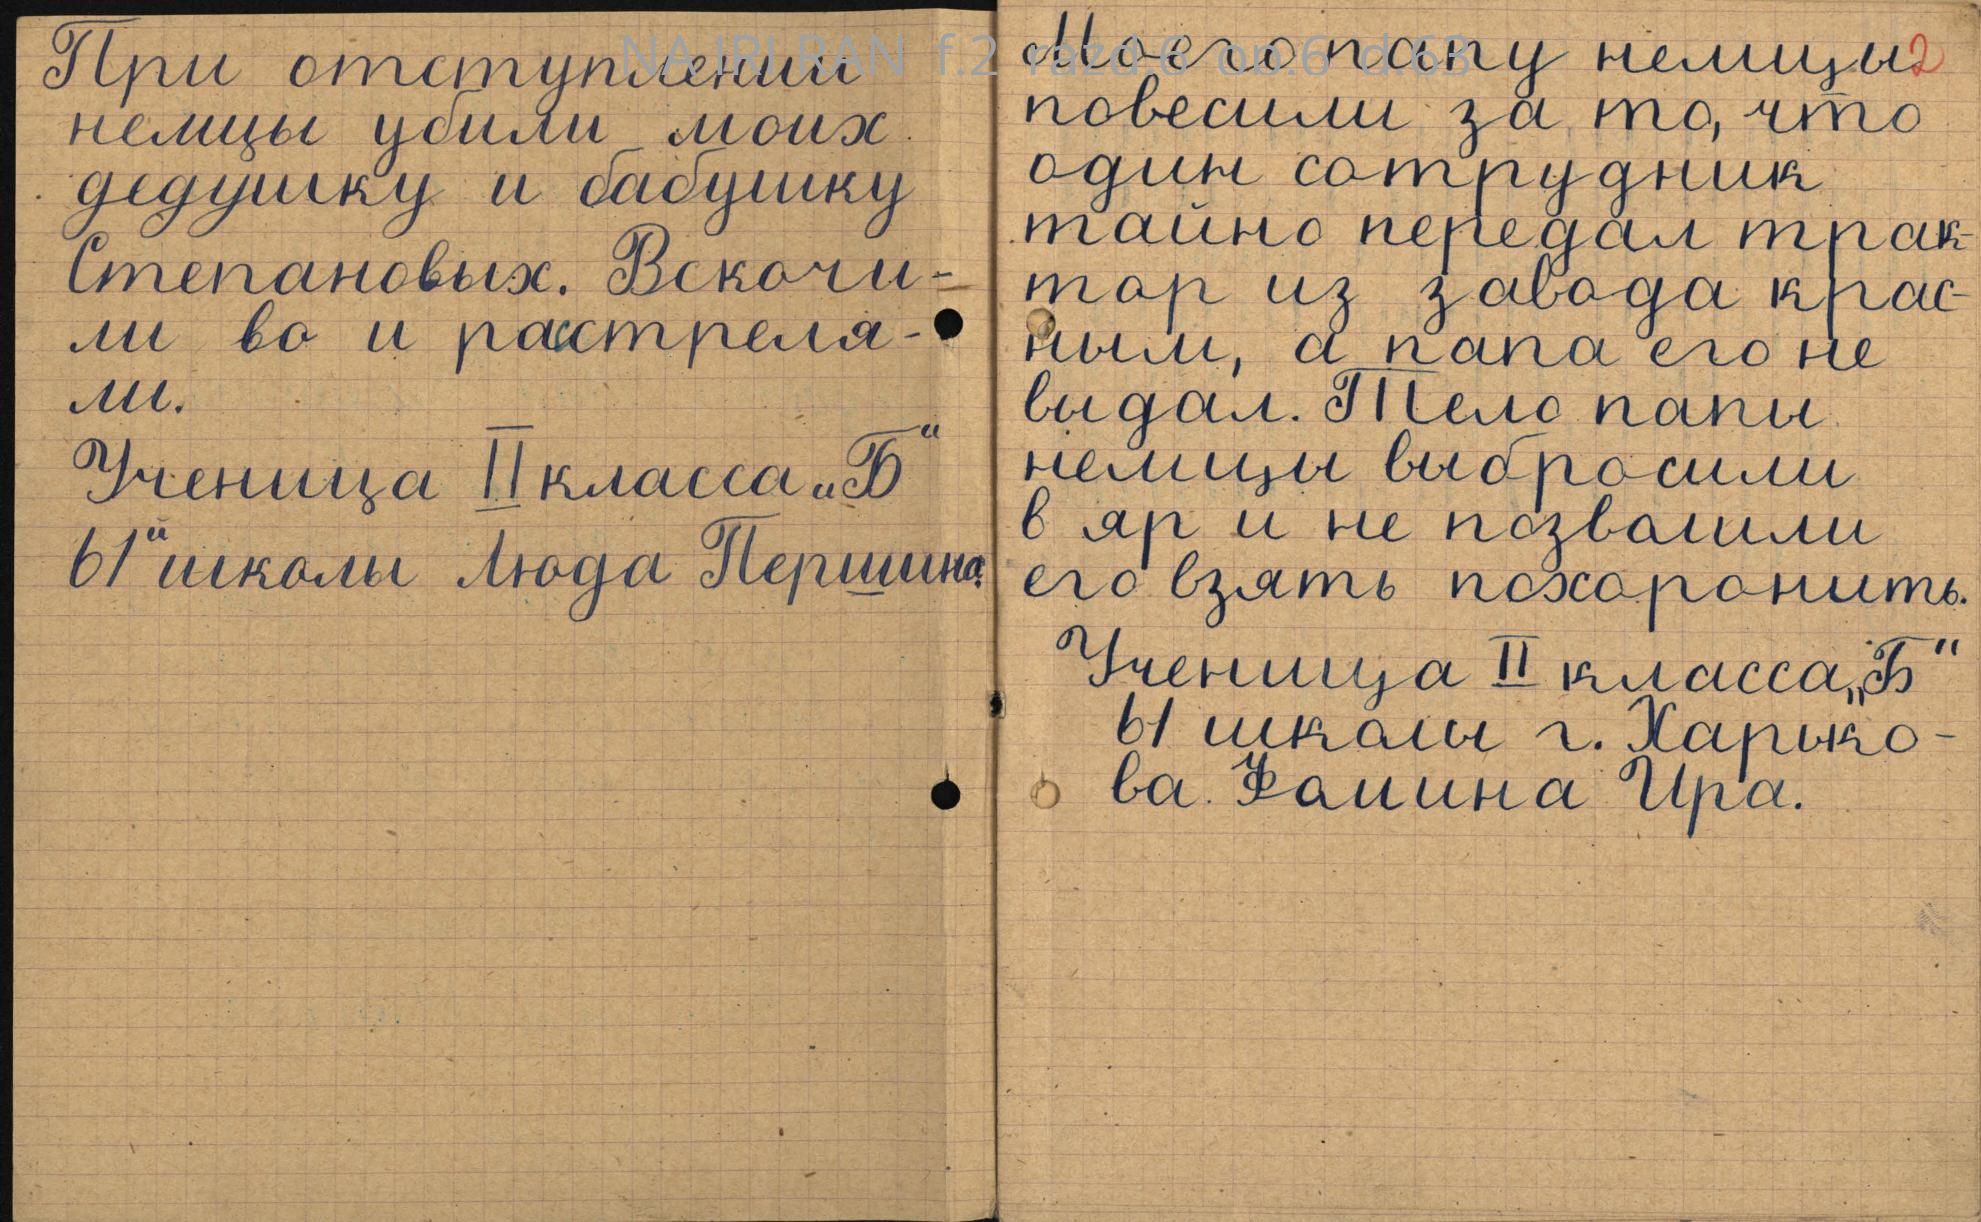 При отступлении
немцы убили моих
дедушку и бабушку
Степановых. Вскочи-
ли во и растреля-
ли.
Ученица II класса „Б“
61й школы Люда Першина.
NA IRI RAN f.2 razd 6 op.6 d.63
2
Моего папу немцы
повесили за то, что
один сотрудник
тайно передал трак-
тор из завода крас-
ным, а папа его не
выдал. Тело папы
немцы выбросили
в яр и не позволили
его взять похоронить.
Ученица II класса „Б“
61 школы г. Харько-
ва Фомина Ира.